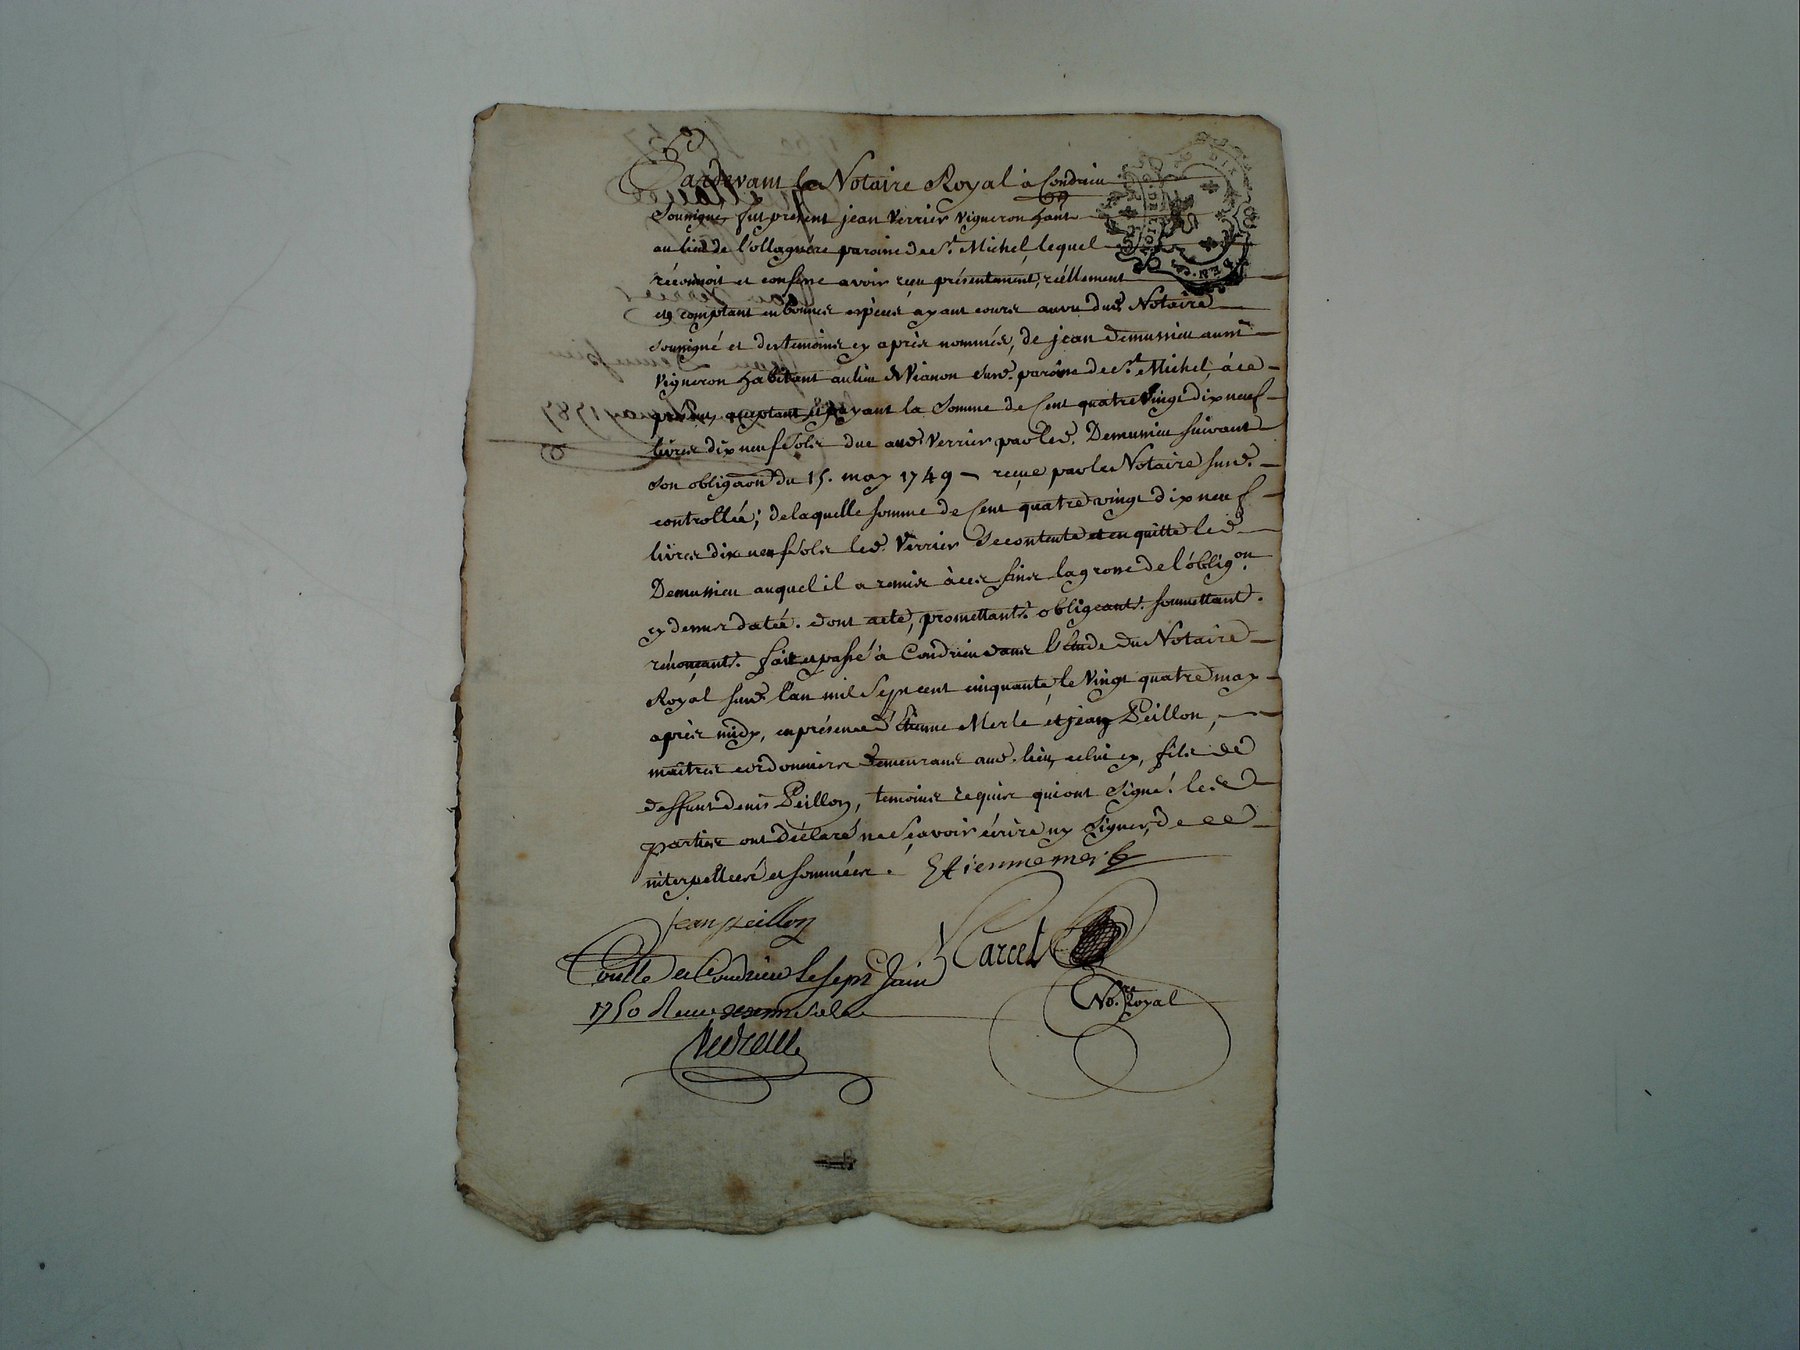 Pardevant le Notaire Royal à Condrieu
soussigné fut present jean Verrier vigneron habt.
au lieu de l'ollagnére paroisse de st. Michel, lequel
réconnoit et confesse avoir reçu présentement, réèllement
et comptant en bonnes espèces ayant cours au vu dud. Notaire
soussigné et des temoins cy après nommés, de jean Demussieu aussi
vigneron habitant au lieu de Vianon sud. paroisse de st. Michel, à ce
présent, acceptant la somme de Cent quatre Vingt dix neuf
livres dix neuf sols due aud. Verrier par led. Demussieu suivant
son obligaon. du 15. may 1749 reçue par le Notaire susd.
controllée; de laquelle somme de Cent quatre vingt dix neuf
livres dix neuf sols led. Verrier se contente et en quitte led.
Demussieu auquel il a remis à ces fins la grosse de l'óbligon.
cy dessus datée. dont acte, promettants. obligeants. soumettants.
rénonçants. fait et passé à Condrieu dans l'étude du Notaire
Royal susd. l'an mil sept cent cinquante, le vingt quatre may
après midy, en présence d'étienne Merle et jean Peillon,
maîtres cordonniers demeurans aud. lieu, celui cy, fils de
deffunt denis Peillon, temoins requis qui ont signé. lesd.
parties ont déclaré ne sçavoir écrire ny signer, de ce
interpellées et sommées. Ettienne merle
jean peillon
Marcet
Conllé a Condrieu le sept Juin
Nore. Royal
1750 Reçu sols